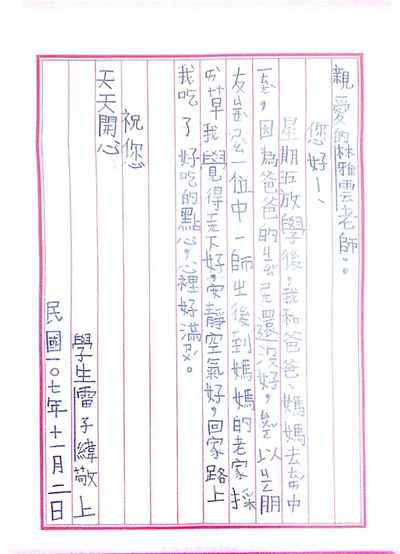 親愛的林雅雲老師。
您好!、
星期五放學後,我和爸爸、媽媽去中
因為爸爸的還沒好,以朋
友一位中一師生後到媽媽的老家採
草我覺得下好,安靜空氣好,回家路上
我吃了好吃的點心,心裡好滿ㄗㄨˊ。
祝您
天天開心
學生雷子緯敬上
民國一〇七年十一月二日